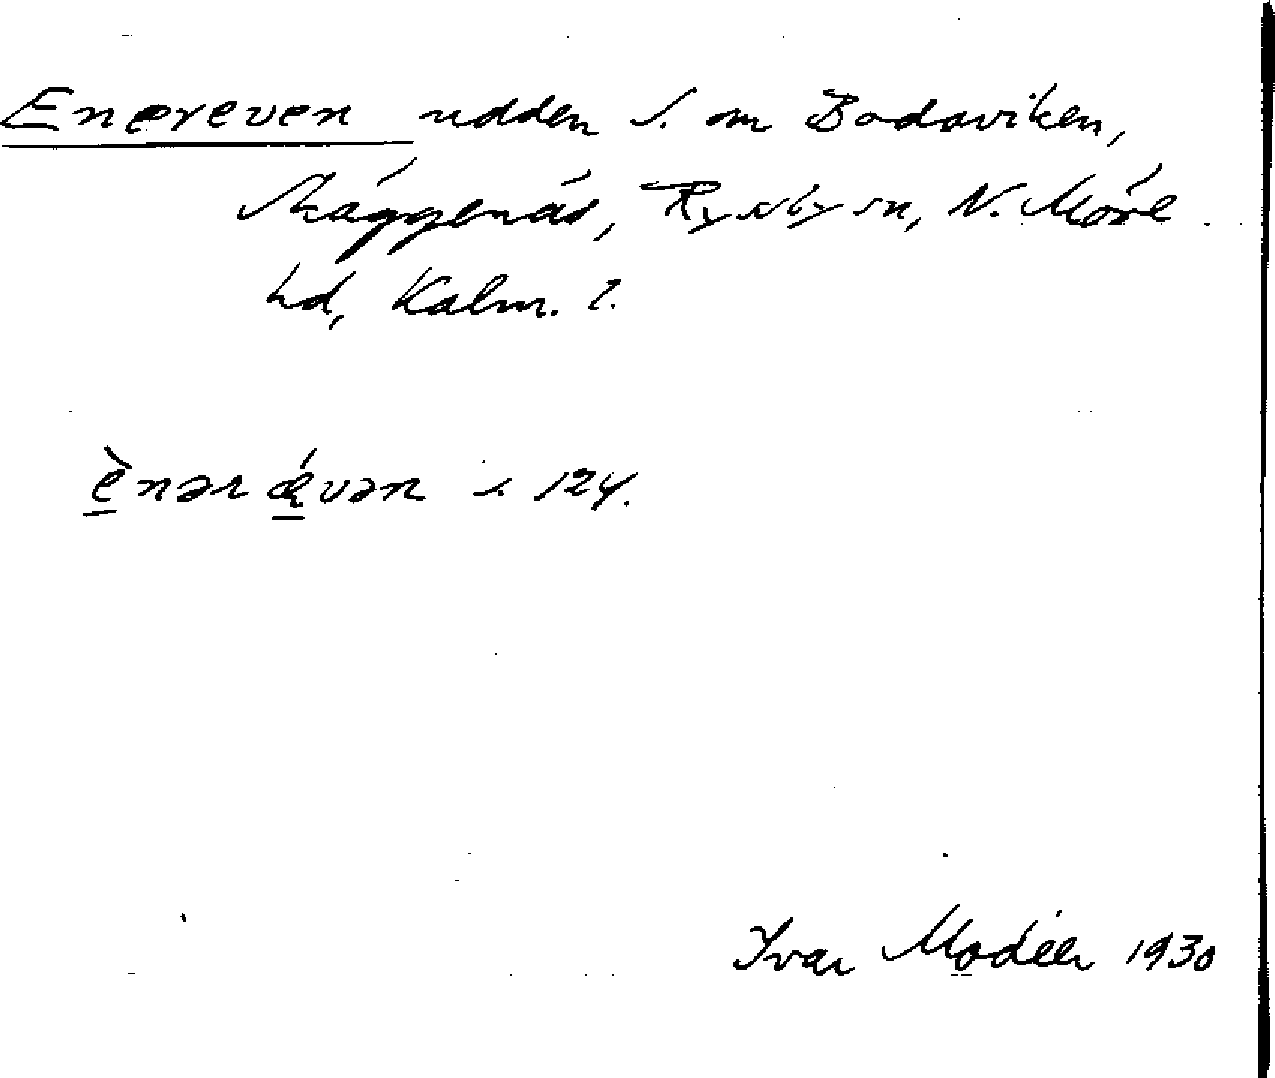 Enereven udden S. om Bodaviken,
Skäggenäs, Ryssby sn, N. Möre
hd, Kalm. l.
ènərǽvən i 124.
Ivar Modéer 1930